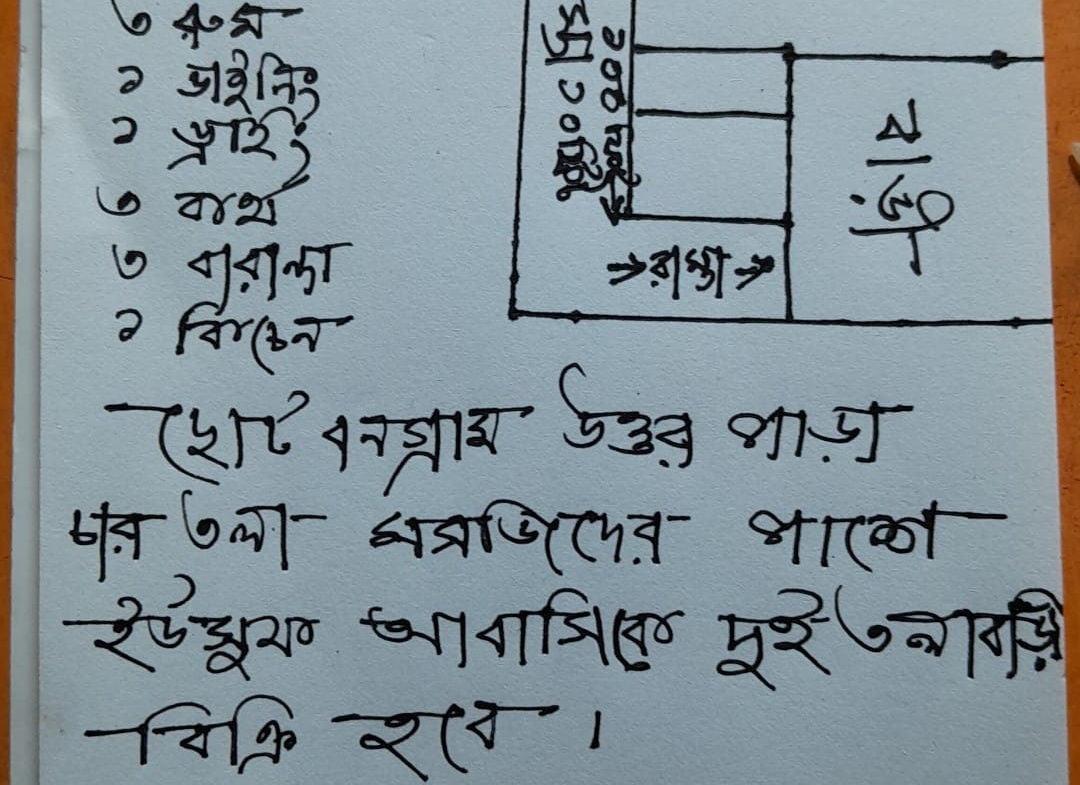 ৩ রুম
১ ডাইনিং
১ ড্রইং
৩ বাথ
৩ বারান্দা
১ কিচেন
বাড়ী
→রাস্তা→
ছোট বনগ্রাম উত্তর পাড়া
চার তলা মসজিদের পাশে
ইউসুফ আবাসিকে দুই তলা বাড়ি
বিক্রি হবে ।